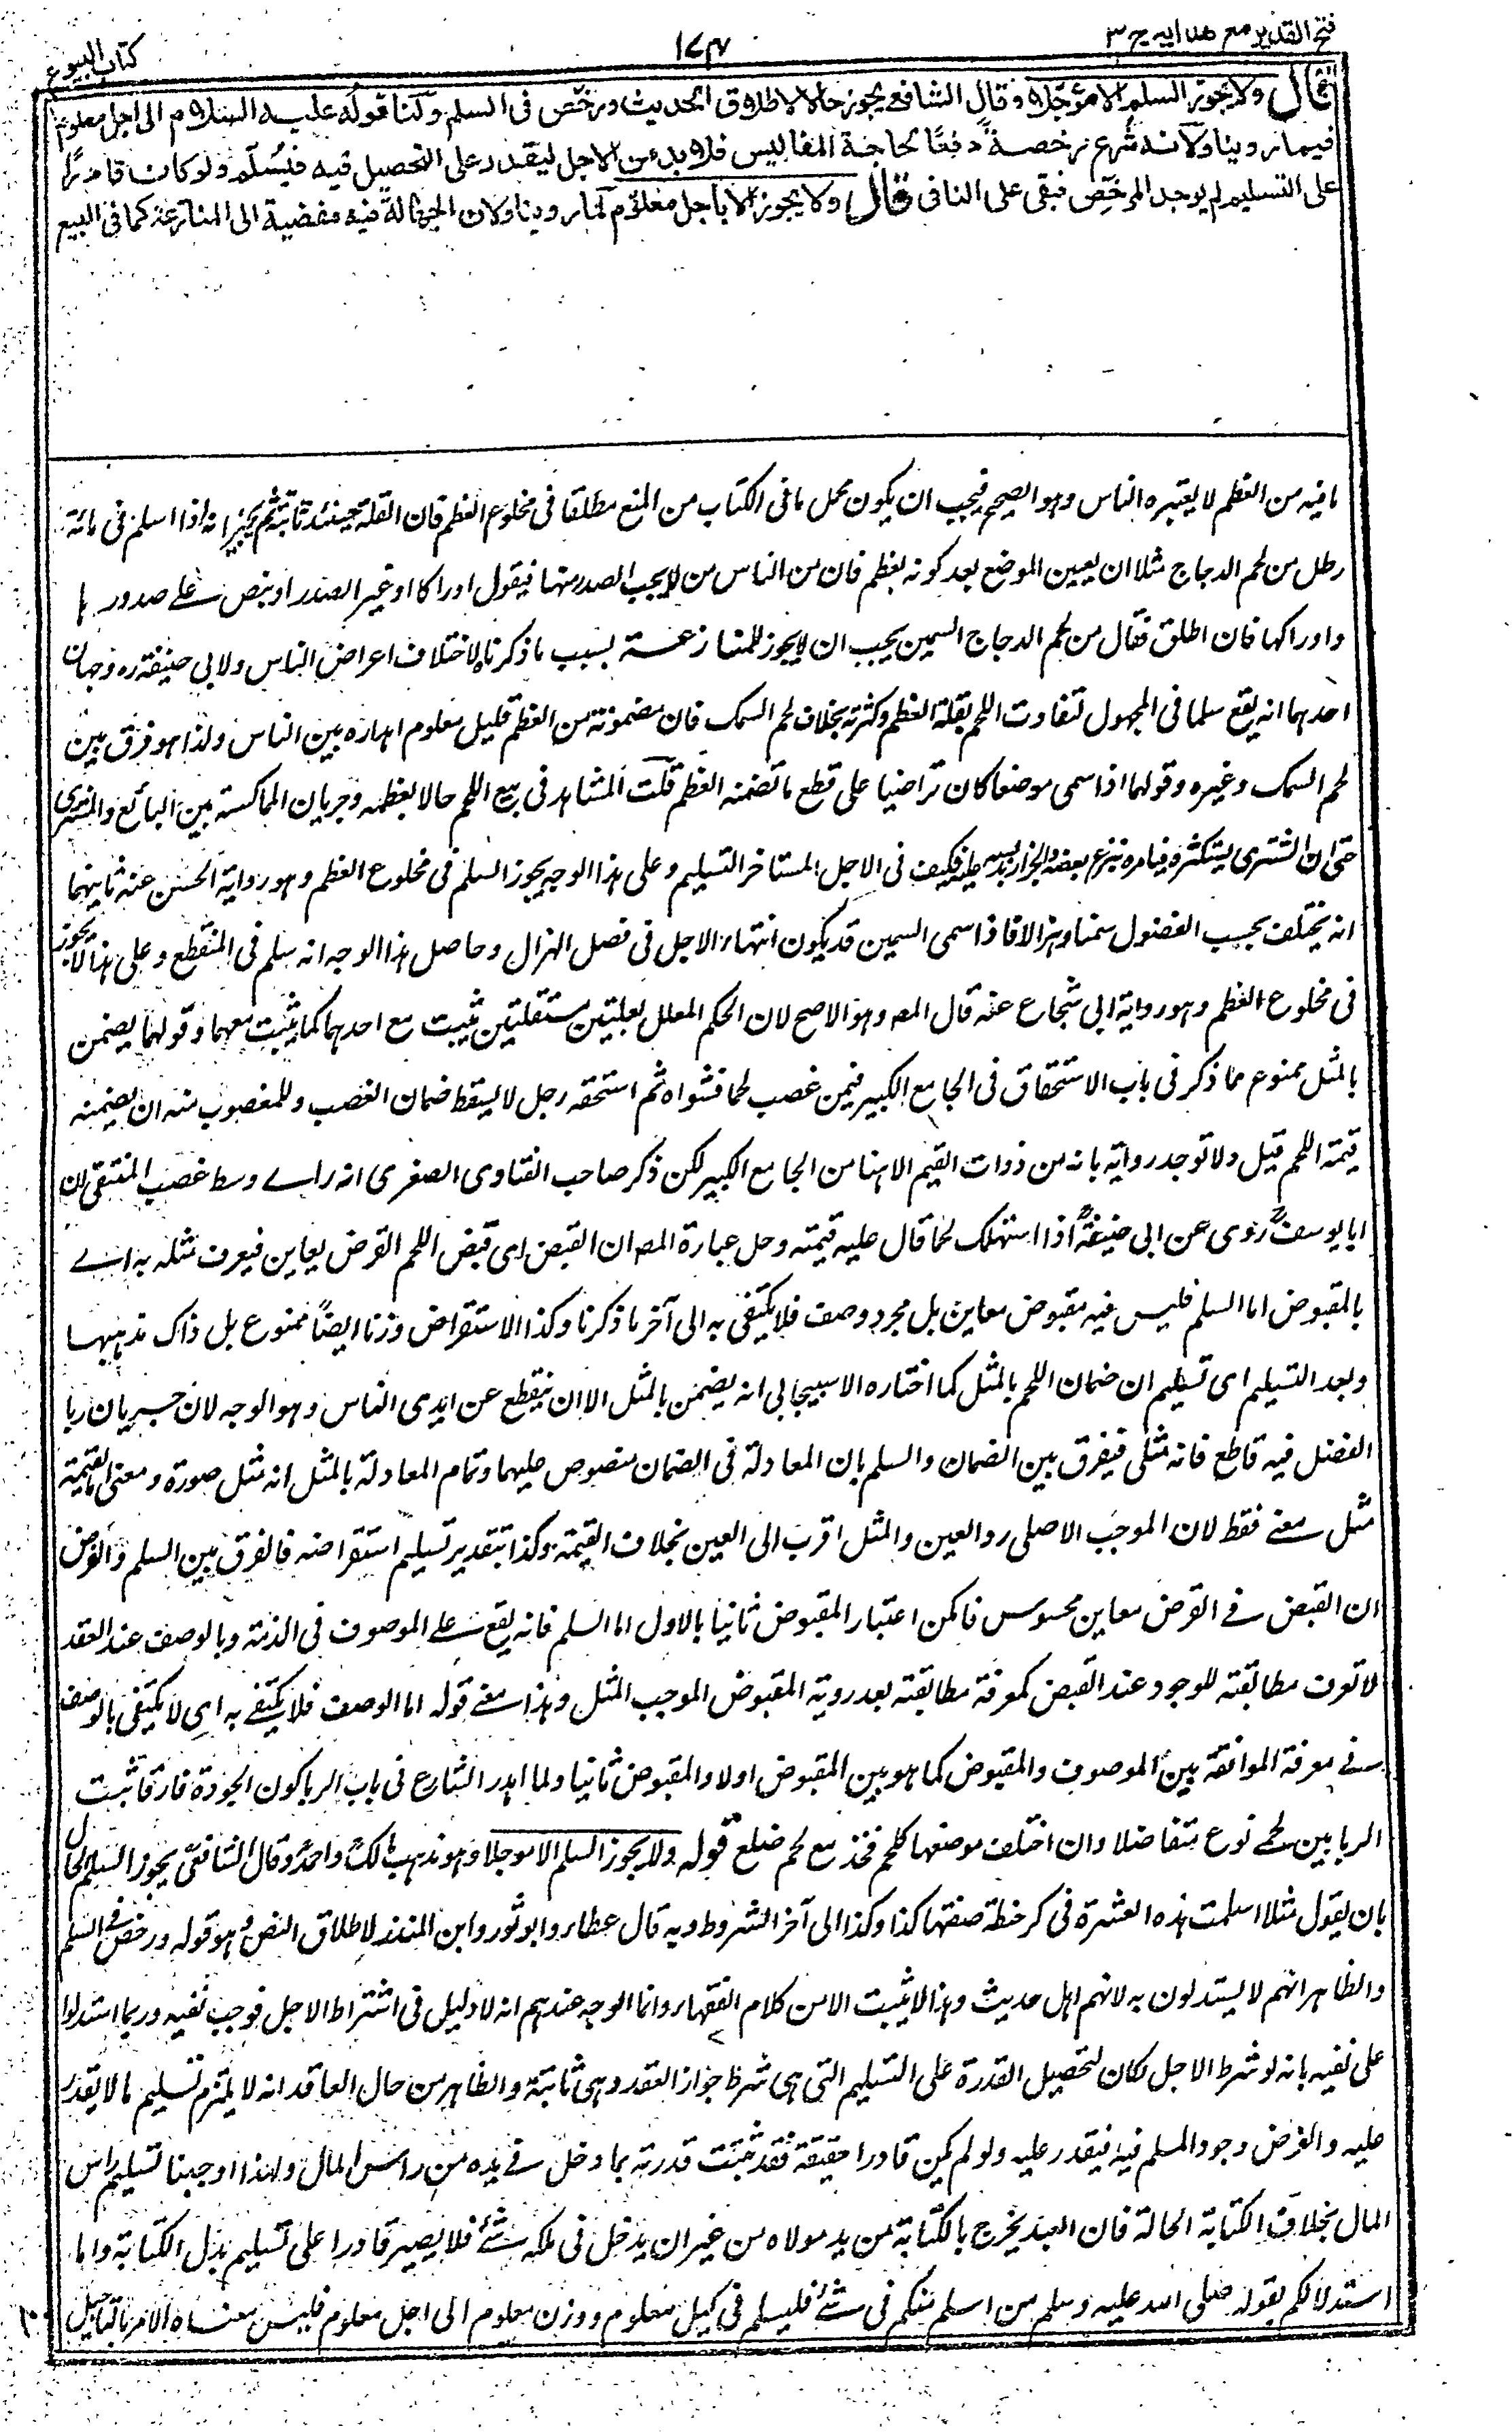 فتح القدير مع هدايه ج ٣
١٧٤
كتاب البيوع
قال ولا يجوز السلم الا مؤجلا وقال الشافعي يجوز حالا لاطلاق الحديث ورخص في السلم ولنا قوله عليه السلام الى اجل معلوم
فيما روينا ولانه شرع رخصة دفعا لحاجة المفاليس فلا بد من الاجل ليقدر على التحصيل فيه فيسلم ولو كان قادرا
على التسليم لم يوجد المرخص فبقى على النافى قال ولا يجوز الا باجل معلوم لما روينا ولان الجهالة فيه مفضية الى المنازعة كما فى البيع
ما فيه من العظم لا يعتبره الناس وهو الصحيح فيجب ان يكون محل ما فى الكتاب من المنع مطلقا فى مخلوع العظم فان القلة حينئذ ثابتة ثم يجيز انه اذا اسلم فى مائة
رطل من لحم الدجاج مثلا ان يعين الموضع بعد كونه بعظم فان من الناس من لا يحب الصدر منها فيقول اوراكا او غير الصدر او ينص على صدورها
واوراكها فان اطلق فقال من لحم الدجاج السمين يجب ان لا يجوز للمنازعة بسبب ما ذكرناه لاختلاف اعراض الناس ولابي حنيفة ره وجهان
احدهما انه يقع سلما فى المجهول لتفاوت اللحم بقلة العظم وكثرته بخلاف لحم السمك فان مضمونه من العظم قليل معلوم اهداره بين الناس ولذا هو فرق بين
لحم السمك وغيره وقولهما اذا سمى موضعا كان تراضيا على قطع ما تضمنه العظم قلت المشاهد فى بيع اللحم حالا بعظمه وجريان المماكسة بين البائع والمشترى
حتى ان المشترى يستكثره فيامره بنزع بعضه والجزار يدسه عليه فكيف فى الاجل المستاخر التسليم وعلى هذا الوجه يجوز السلم فى مخلوع العظم وهو رواية الحسن عنه ثانيهما
انه يختلف بحسب الفصول سمنا وهزالا فاذا سمى السمين قد يكون انتهاء الاجل فى فصل الهزال وحاصل هذا الوجه انه سلم فى المنقطع وعلى هذا لا يجوز
فى مخلوع العظم وهو رواية ابى شجاع عنه قال المصـ وهو الاصح لان الحكم المعلل بعلتين مستقلتين يثبت مع احدهما كما يثبت معهما وقولهما يضمن
بالمثل ممنوع مما ذكر فى باب الاستحقاق فى الجامع الكبير فيمن غصب لحما فشواه ثم استحقه رجل لا يسقط ضمان الغصب وللمغصوب منه ان يضمنه
قيمة اللحم قيل ولا توجد رواية بانه من ذوات القيم الا هنا من الجامع الكبير لكن ذكر صاحب الفتاوى الصغرى انه راى وسط غصب المنتقى ان
ابا يوسف روى عن ابى حنيفة اذا استهلك لحما قال عليه قيمته وحل عبارة المصـ ان القبض اى قبض اللحم القرض يعاين فيعرف مثله به اى
بالمقبوض اما السلم فليس فيه مقبوض معاين بل مجرد وصف فلا يكتفى به الى آخر ما ذكرنا وكذا الاستقراض وزنا ايضا ممنوع بل ذاك مذهبهما
وبعد التسليم اى تسليم ان ضمان اللحم بالمثل كما اختاره الاسبيجابى انه يضمن بالمثل الا ان ينقطع عن ايدى الناس وهو الوجه لان جريان ربا
الفضل فيه قاطع فانه مثلى فيفرق بين الضمان والسلم بان المعادلة فى الضمان منصوص عليها وتمام المعادلة بالمثل انه مثل صورة ومعنى اما القيمة
مثل معنى فقط لان الموجب الاصلى رد العين والمثل اقرب الى العين بخلاف القيمة وكذا بتقدير تسليم استقراضه فالفرق بين السلم والقرض
ان القبض فى القرض معاين محسوس فامكن اعتبار المقبوض ثانيا بالاول اما السلم فانه يقع على الموصوف فى الذمة وبالوصف عند العقد
لا تعرف مطابقته للموجود عند القبض كمعرفة مطابقته بعد روية المقبوض الموجب المثل وهذا معنى قوله اما الوصف فلا يكتفى به اى لا يكتفى بالوصف
فى معرفة الموافقة بين الموصوف والمقبوض كما هو بين المقبوض اولا والمقبوض ثانيا ولما اهدر الشارع فى باب الربا كون الجودة فارقا ثبت
الربا بين لحمى نوع متفاضلا وان اختلف موضعها كلحم فخذ مع لحم ضلع قوله ولا يجوز السلم الا موجلا وهو مذهب مالك واحمد وقال الشافعى يجوز السلم الحال
بان يقول مثلا اسلمت هذه العشرة فى كر حنطة صفتها كذا وكذا الى آخر الشروط وبه قال عطاء وابو ثور وابن المنذر لاطلاق النص وهو قوله ورخص فى السلم
والظاهر انهم لا يستدلون به لانهم اهل حديث وهذا لا يثبت الا من كلام الفقهاء وانما الوجه عندهم انه لا دليل فى اشتراط الاجل فوجب نفيه وربما استدلوا
على نفيه بانه لو شرط الاجل لكان لتحصيل القدرة على التسليم التى هى شرط جواز العقد وهى ثابتة والظاهر من حال العاقد انه لا يلتزم تسليم ما لا يقدر
عليه والغرض وجود المسلم فيه فيقدر عليه ولو لم يكن قادرا حقيقة فقد ثبتت قدرته بما دخل فى يده من راس المال ولهذا اوجبنا تسليم راس
المال بخلاف الكتابة الحالة فان العبد يخرج بالكتابة من يد مولاه من غير ان يدخل فى ملكه شئ فلا يصير قادرا على تسليم بدل الكتابة واما
استدلالكم بقوله صلى الله عليه وسلم من اسلم منكم فى شئ فليسلم فى كيل معلوم ووزن معلوم الى اجل معلوم فليس معناه الامر بالتاجيل